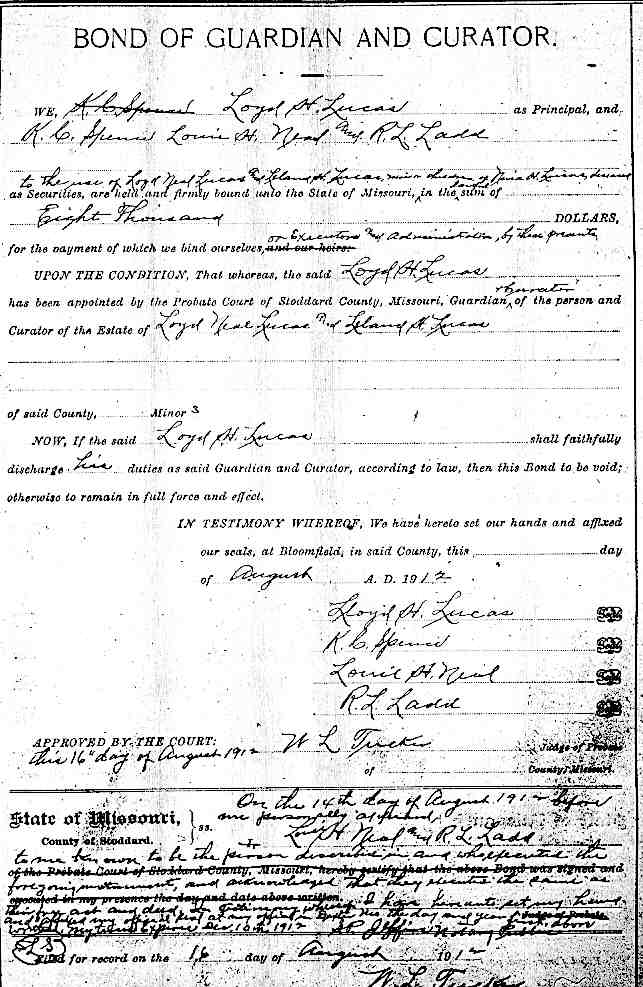 BOND OF GUARDIAN AND CURATOR.
WE, K. C. Spence Loyd H. Lucas as Principal, and
K. C. Spence Louie H. Neal and R. L. Ladd
to the use of Loyd Neal Lucas and Leland H. Lucas, minor children of H. Lucas, deceased
as Securities, are held and firmly bound unto the State of Missouri, in the sum of
Eight Thousand DOLLARS,
or Executors and Administrators, by these presents
for the payment of which we bind ourselves, and our heirs.
UPON THE CONDITION, That whereas, the said Loyd H. Lucas
& curator
has been appointed by the Probate Court of Stoddard County, Missouri, Guardian of the person and
Curator of the Estate of Loyd Neal Lucas and Leland H Lucas
of said County, Minor s
NOW, If the said Loyd H. Lucas shall faithfully
discharge his duties as said Guardian and Curator, according to law, then this Bond to be void;
otherwise to remain in full force and effect.
IN TESTIMONY WHEREOF, We have hereto set our hands and affixed
our seals, at Bloomfield, in said County, this day
of August A. D. 1912
Lloyd H. Lucas Seal
K. C. Spence Seal
Louie H. Neal Seal
R. L. Ladd Seal
APPROVED BY THE COURT:
this 16" day of August 1912 W L Tucker Judge of Probate
of County, Missouri.
On the 14th day of August 1912 before
State of Missouri, ss. me personally appeared
County of Stoddard. Louie H Neal and R. L. Ladd
to me known to be the person described in and who executed the
of the Probate Court of Stoddard County, Missouri, hereby certify that the above Bond was signed and
foregoing instrument, and acknowledged that they executed the same as
executed in my presence the day and date above written.
their act and deed. I have hereunto set my hand
and affixed my official seal at my office in the day and year above
written. My term expires Dec 10th 1912 Notary Public
LS
Filed for record on the 16 day of August 1912
W. L. Tucker